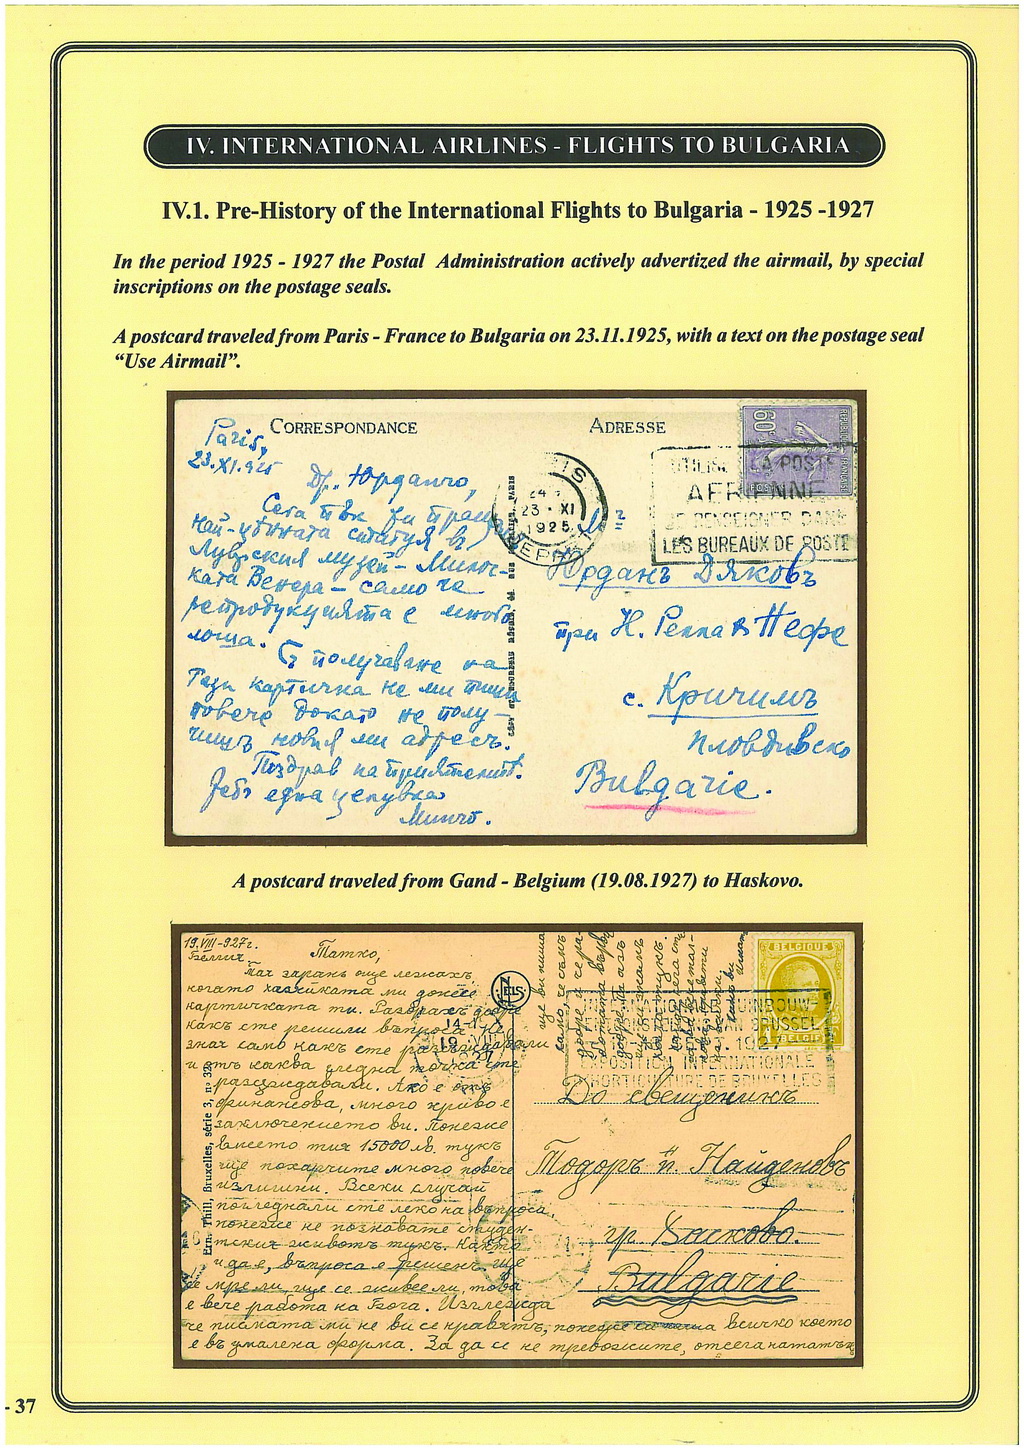 IV. INTERNATIONAL AIRLINES - FLIGHTS TO BULGARIA
IV.1. Pre-History of the International Flights to Bulgaria - 1925 -1927
In the period 1925 - 1927 the Postal Administration actively advertized the airmail, by special
inscriptions on the postage seals.
A postcard traveled from Paris - France to Bulgaria on 23.11.1925, with a text on the postage seal
“Use Airmail”.
CORRESPONDANCE
Paris,
23.XI.925
Др. Юрданчо,
Сега пък ти пращам
най-хубавата статуя въ
Лувърския музей - Милос-
ката Венера - само че
репродукцията е много
лоша. С получаване на
тази картичка не ми пиши
повече докато не полу-
чишъ новия ми адресъ.
Поздрав на приятелите.
Тебъ една целувка
Минчо.
ADRESSE
23 · XI
1925
LA POSTE
AERIENNE
SE RENSEIGNER DANS
LES BUREAUX DE POSTE
60
Юрданъ Дяковъ
при Н.
с. Кричимъ
Пловдивско
Bulgarie.
A postcard traveled from Gand - Belgium (19.08.1927) to Haskovo.
19.VIII-927г.
Белгия.
Татко,
заранъ още лежахъ,
когато хазяйката ми донесе
картичката ти. Разбрахъ добре
какъ сте решили въпроса. Не
зная само какъ сте разсъждавали
и отъ каква гледна точка сте
разсъждавали. Ако е отъ
финансова, много криво е
заключението ви. Понеже
вместо тия 15000 лв. тукъ
ще похарчите много повече
излишни. Всеки случай
погледнали сте леко на въпроса,
понеже не познавате студен-
тския животъ тукъ. Както
и да е, въпроса е решенъ. Ще
се мре ли, ще се живее ли, това
е вече работа на Бога. Изглежда
че писмата ми не ви се нравятъ, понеже си пиша всичко което
е въ умалена форма. За да се не тревожите, отсега нататъкъ
NELS
19 VIII
27
Ern. Thill, Bruxelles, série 3, nº 32
BELGIQUE
BELGIË
TUINBOUW-
BRUSSEL
1927
EXPOSITION INTERNATIONALE
D'HORTICULTURE DE BRUXELLES
До свещеникъ
Тодоръ п. Найденовъ
гр. Хасково.
Bulgarie
- 37